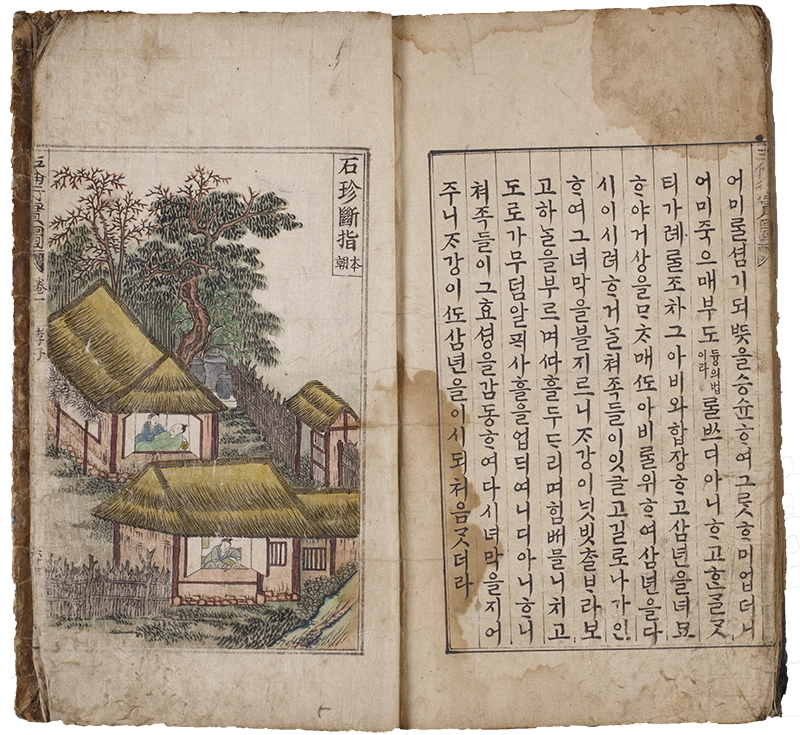 어미ᄅᆞᆯ셤기되ᄯᅳᆺ을승슌ᄒᆞ여그ᄅᆞᆺᄒᆞ미업더니
어미죽으매부도듕의법이라ᄅᆞᆯᄡᅳ디아니ᄒᆞ고ᄒᆞᆫᄀᆞᆯᄀᆞᆺ
티가례ᄅᆞᆯ조차그아비와합장ᄒᆞ고삼년을녀묘
ᄒᆞ야거상을ᄆᆞᄎᆞ매ᄯᅩ아비ᄅᆞᆯ위ᄒᆞ여삼년을다
시이시려ᄒᆞ거ᄂᆞᆯ쳐족들이잇글고길로나가인
ᄒᆞ여그녀막을블지르니ᄌᆞ강이ᄂᆡᆺ빗츨ᄇᆞ라보
고하ᄂᆞᆯ을부르며ᄯᅡ흘두드리며힘ᄡᅥ믈니치고
도로가무덤알ᄑᆡ사흘을업듸여니디아니ᄒᆞ니
쳐족들이그효셩을감동ᄒᆞ여다시녀막을지어
주니ᄌᆞ강이ᄯᅩ삼년을이시되처음ᄀᆞᆺ더라
石珍斷指 本朝
五倫行實圖 卷一 孝子